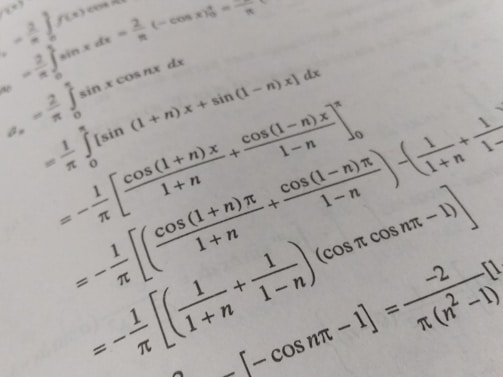 = 2/π ∫₀ f(x) cos n
= 2/π ∫₀ sin x dx = 2/π (−cos x)₀ = 2/π
aₙ = 2/π ∫₀ sin x cos nx dx
= 1/π ∫₀ [sin (1 + n) x + sin (1 − n) x] dx
= −1/π [cos (1 + n) x / 1 + n + cos (1 − n) x / 1 − n]₀^π
= −1/π [(cos (1 + n) π / 1 + n + cos (1 − n) π / 1 − n) − (1 / 1 + n + 1 / 1
= −1/π [(1 / 1 + n + 1 / 1 − n) (cos π cos nπ − 1)]
[− cos nπ − 1] = −2 / π (n² − 1) [1